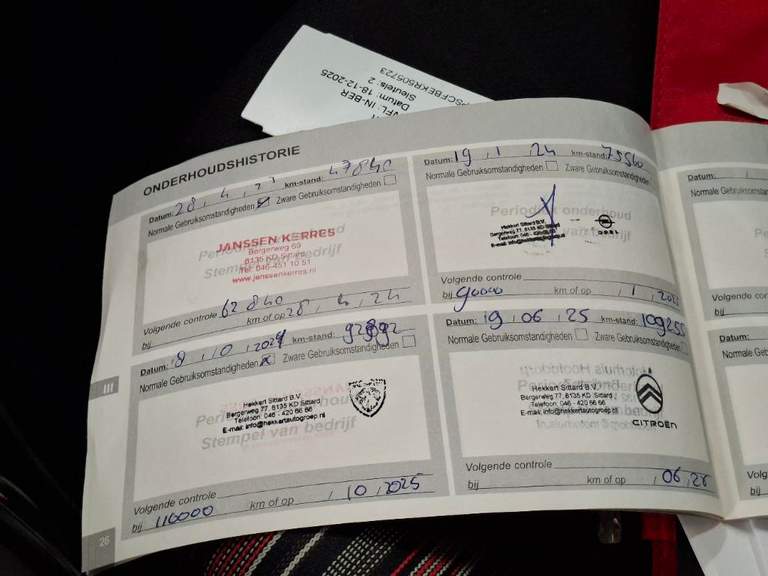 NFL: IN-BER
Datum: 18-12-2025
Sleutels: 2
ONDERHOUDSHISTORIE
Datum: 28, 4, km-stand: 47840
Normale Gebruiksomstandigheden Zware Gebruiksomstandigheden
JANSSEN KERRES
Bergerweg 69
6135 KD Sittard
Tel. 046-451 10 51
www.janssenkerres.nl
Stempel van bedrijf
Volgende controle
bij 62840 km of op 28, 4, 24
Datum: 19, 1, 24 km-stand: 75560
Normale Gebruiksomstandigheden Zware Gebruiksomstandigheden
Periodiek onderhoud
Hekkert Sittard B.V.
Bergerweg 77, 6135 KD Sittard
Telefoon: 046 - 420 66 66
E-mail: info@hekkertautogroep.nl
OPEL
Volgende controle
bij 90000 km of op , 1,
Datum: 18, 10, 2024 km-stand:
Normale Gebruiksomstandigheden Zware Gebruiksomstandigheden
Hekkert Sittard B.V.
Bergerweg 77, 6135 KD Sittard
Telefoon: 046 - 420 66 66
E-mail: info@hekkertautogroep.nl
Stempel van bedrijf
Volgende controle
bij 110000 km of op , 10, 2025
Datum: 19, 06, 25 km-stand: 109255
Normale Gebruiksomstandigheden Zware
Hekkert Sittard B.V.
Bergerweg 77, 6135 KD Sittard
Telefoon: 046 - 420 66 66
E-mail: info@hekkertautogroep.nl
CITROËN
Volgende controle
bij km of op , 06, 26
III
26